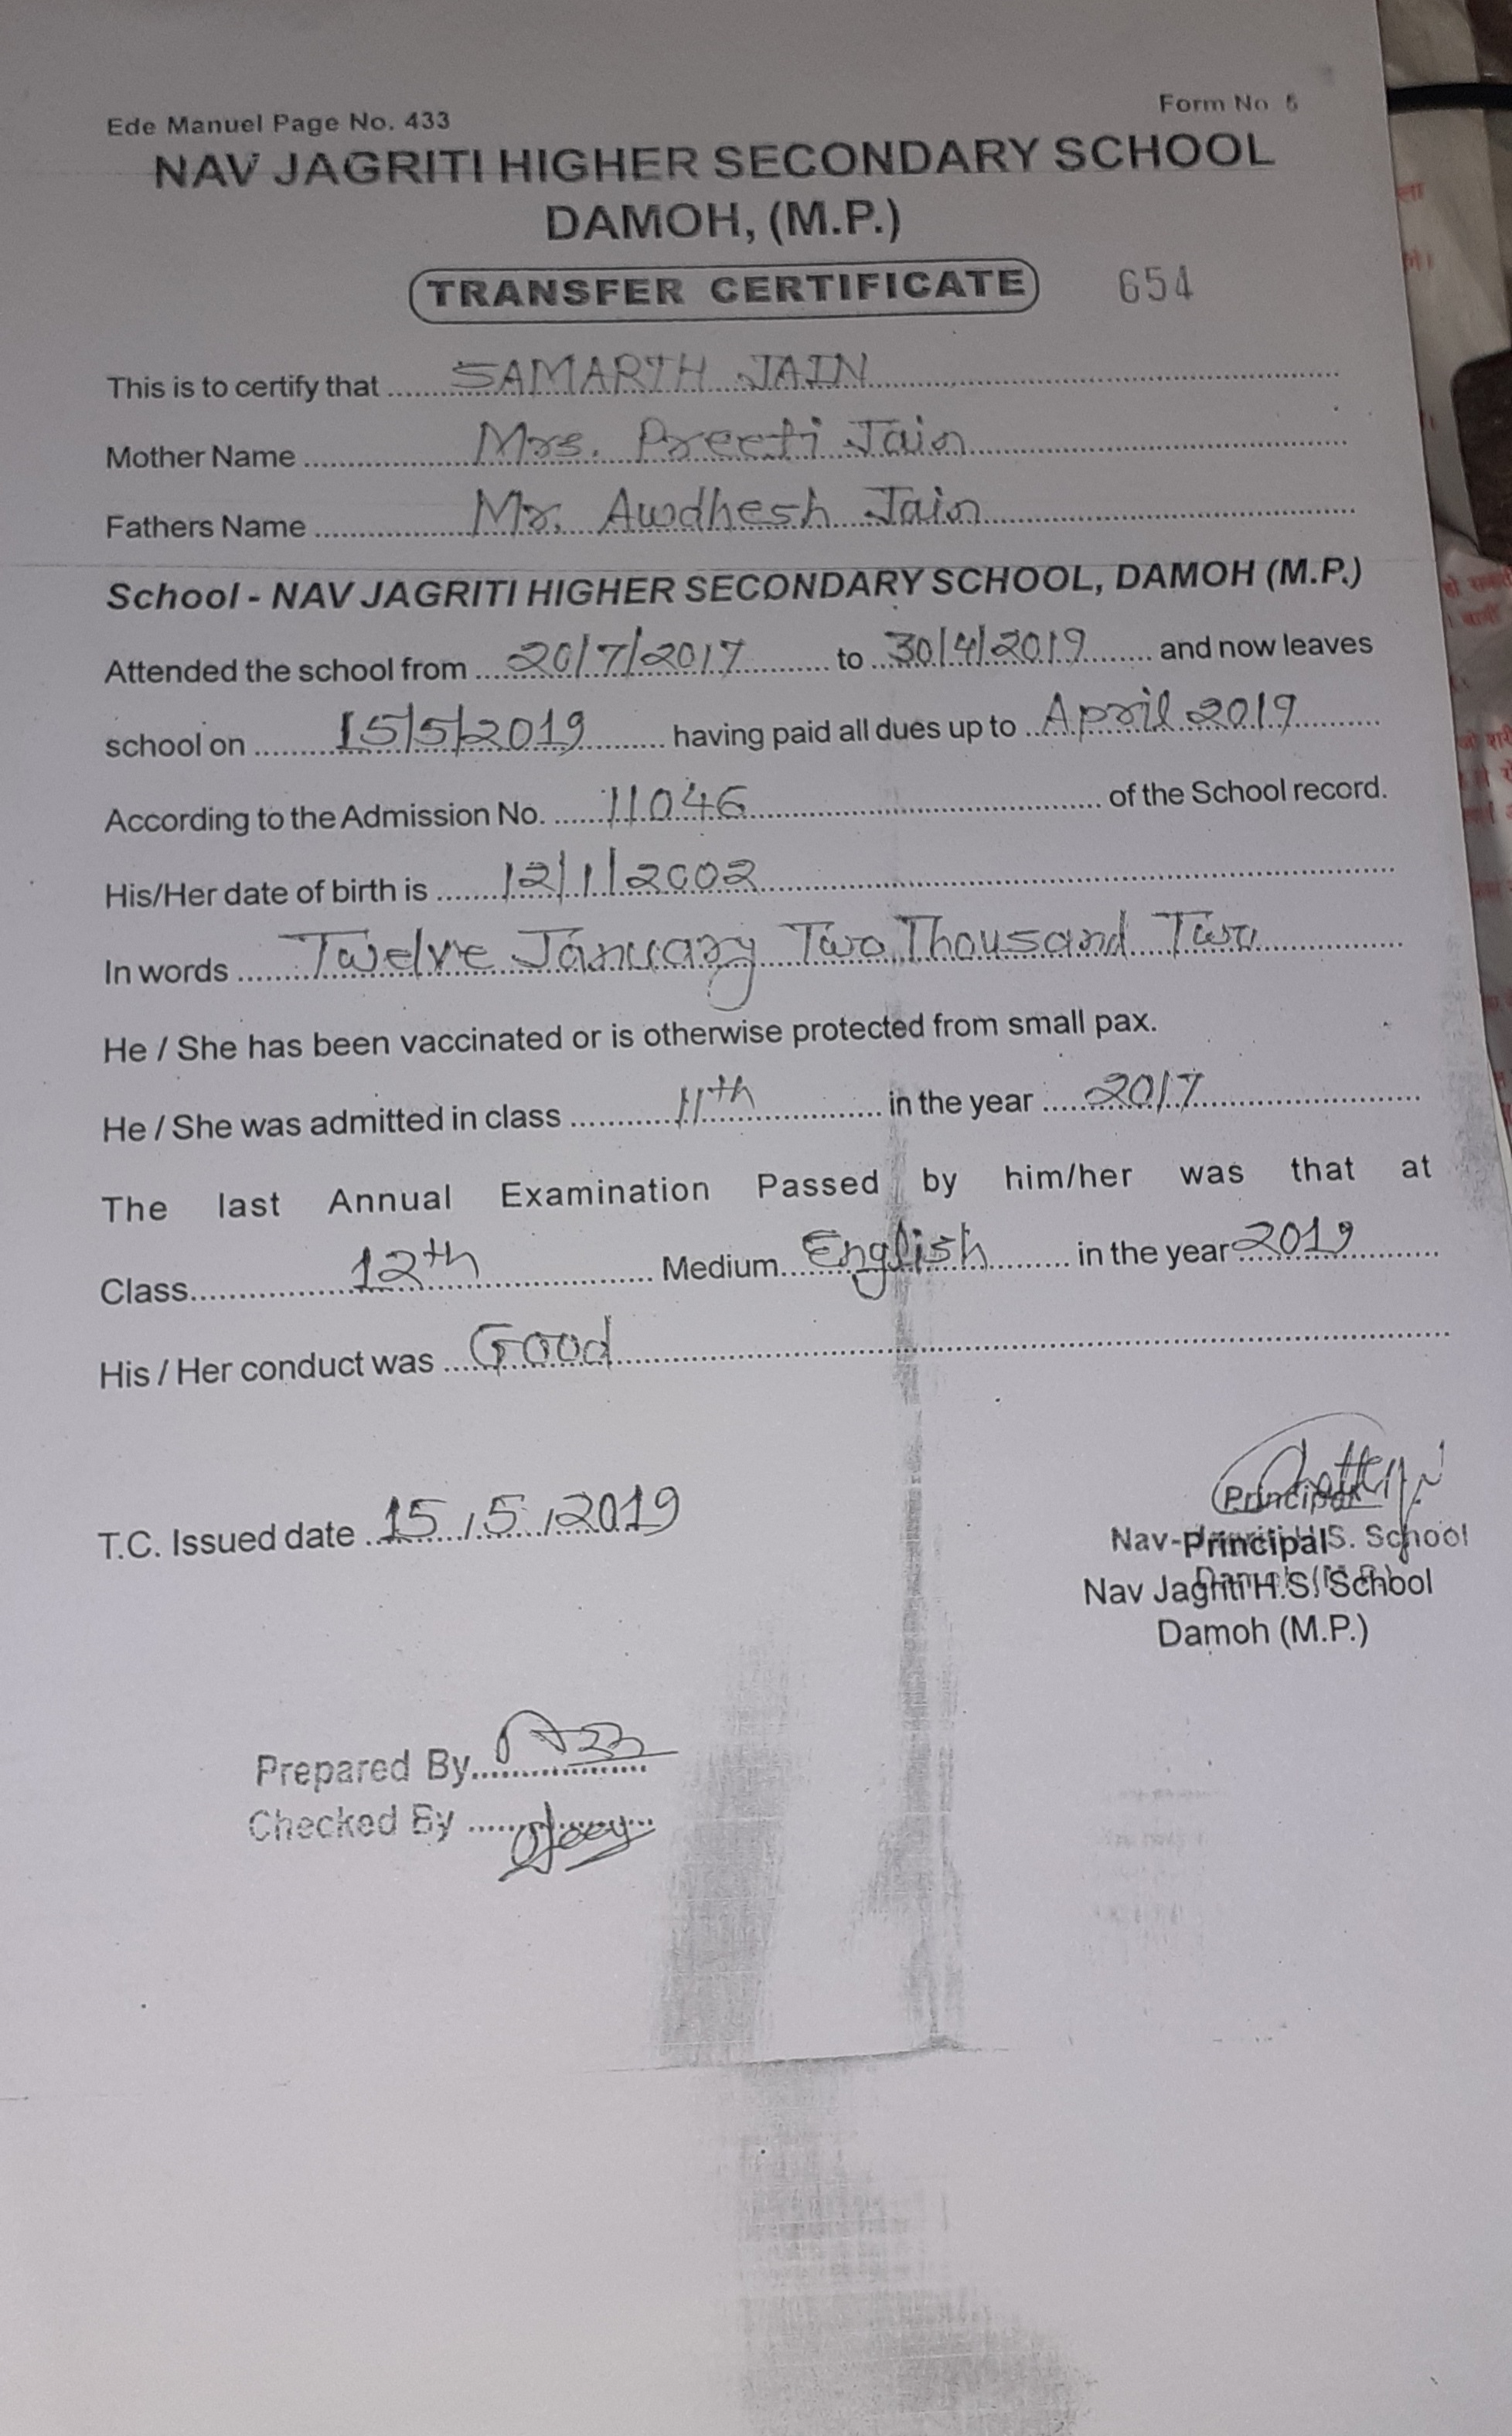 Ede Manuel Page No. 433
Form No 5
NAV JAGRITI HIGHER SECONDARY SCHOOL
DAMOH, (M.P.)
TRANSFER CERTIFICATE 654
This is to certify that SAMARTH JAIN
Mother Name Mrs. Preeti Jain
Fathers Name Mr. Awdhesh Jain
School - NAV JAGRITI HIGHER SECONDARY SCHOOL, DAMOH (M.P.)
Attended the school from 20/7/2017 to 30/4/2019 and now leaves
school on 15/5/2019 having paid all dues up to April 2019
According to the Admission No. 11046 of the School record.
His/Her date of birth is 12/1/2002
In words Twelve January Two Thousand Two
He / She has been vaccinated or is otherwise protected from small pax.
He / She was admitted in class 11th in the year 2017
The last Annual Examination Passed by him/her was that at
Class 12th Medium English in the year 2019
His / Her conduct was Good
T.C. Issued date 15/5/2019
Principal
Nav- S. School
Principal
Nav Jagriti H.S. School
Damoh (M.P.)
Prepared By
Checked By